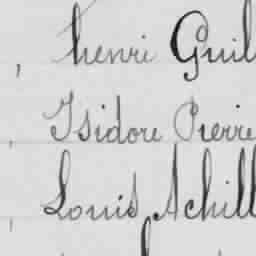 , henri Guil
, Isidore Pierre
, Louis Achill